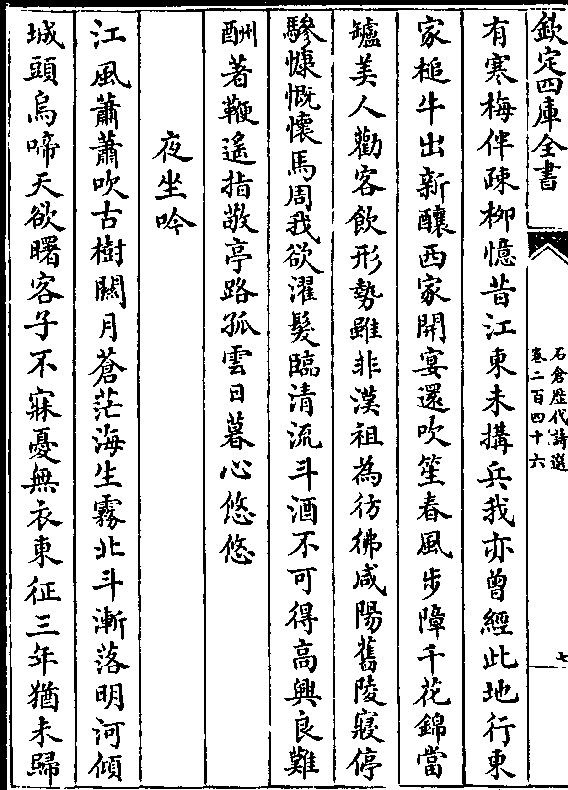 欽定四庫全書
石倉歷代詩選
卷二百四十六
七
有寒梅伴疎柳憶昔江東未搆兵我亦曾經此地行東
家槌牛出新釀西家開宴還吹笙春風步障千花錦當
罏美人勸客飲形勢雖非漢祖為彷彿咸陽舊陵寢停
驂慷慨懷馬周我欲濯髮臨清流斗酒不可得高興良難
酬著鞭遙指敬亭路孤雲日暮心悠悠
夜坐吟
江風蕭蕭吹古樹關月蒼茫海生霧北斗漸落明河傾
城頭烏啼天欲曙客子不寐憂無衣東征三年猶未歸